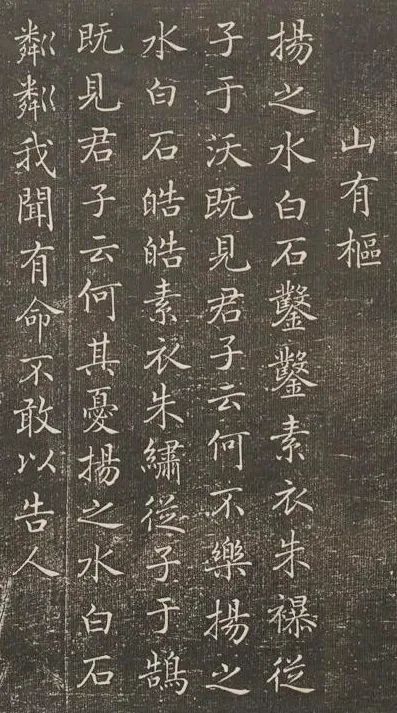 山有樞
揚之水白石鑿鑿素衣朱襮從
子于沃既見君子云何不樂揚之
水白石皓皓素衣朱繡從子于鵠
既見君子云何其憂揚之水白石
粼粼我聞有命不敢以告人